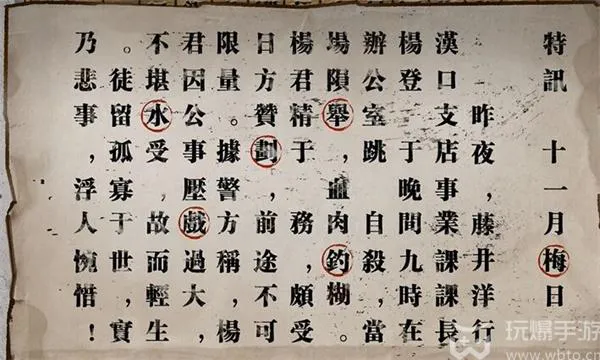 特訊 十一月梅日
昨夜，藤井洋行
漢口支店事業課課長
楊登 于晚間九時在
辦公室跳 自殺，當
場隕舉，血肉釣糊。
楊君精于 務，頗受
日方贊劃，前途，不可
限量。據警方稱，楊
君因公事壓戲過大，
不堪水受，故而輕生
。徒留孤寡于世，實
乃悲事，浮人惋惜！
玩爆手游
www.wbto.cn